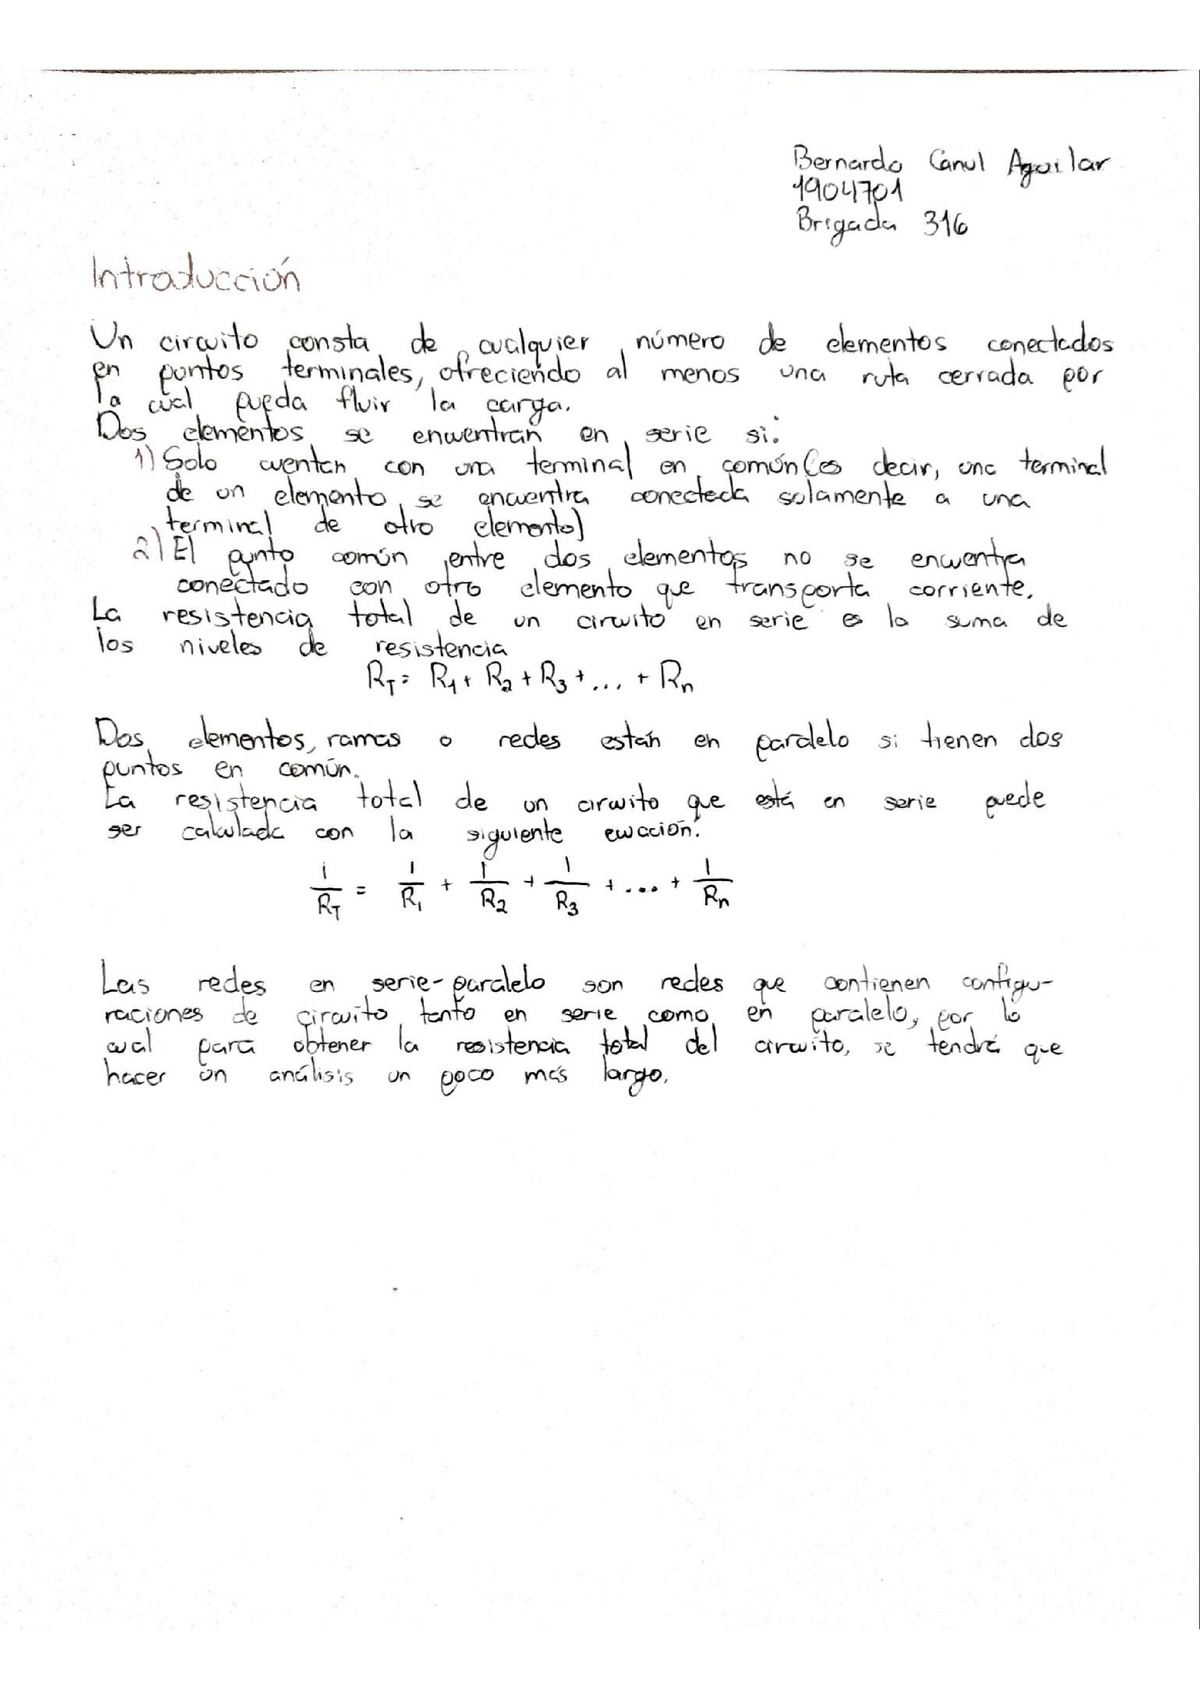 Bernardo Canul Aguilar
1904701
Brigada 316
Introducción
Un circuito consta de cualquier número de elementos conectados
en puntos terminales, ofreciendo al menos una ruta cerrada por
la cual pueda fluir la carga.
Dos elementos se encuentran en serie si:
1) Solo cuentan con una terminal en común (es decir, una terminal
de un elemento se encuentra conectada solamente a una
terminal de otro elemento)
2) El punto común entre dos elementos no se encuentra
conectado con otro elemento que transporta corriente.
La resistencia total de un circuito en serie es la suma de
los niveles de resistencia
R_T = R_1 + R_2 + R_3 + ... + R_n
Dos elementos, ramas o redes están en paralelo si tienen dos
puntos en común.
La resistencia total de un circuito que está en serie puede
ser calculada con la siguiente ecuación:
1/R_T = 1/R_1 + 1/R_2 + 1/R_3 + ... + 1/R_n
Las redes en serie-paralelo son redes que contienen configu-
raciones de circuito tanto en serie como en paralelo, por lo
cual para obtener la resistencia total del circuito, se tendrá que
hacer un análisis un poco más largo.